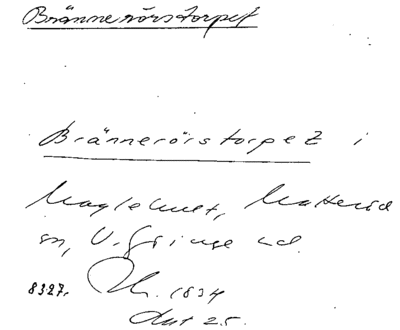 Brännerörstorpet
Brännerörstorpet i
Maglehult, Matteröd
sn, V. Göinge hd.
8327. 1834
Akt 25.